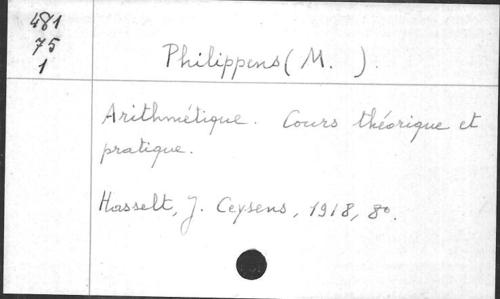 481
75
1
Philippens (M. ).
Arithmétique. Cours théorique et
pratique.
Hasselt, J. Ceysens, 1918, 8o.